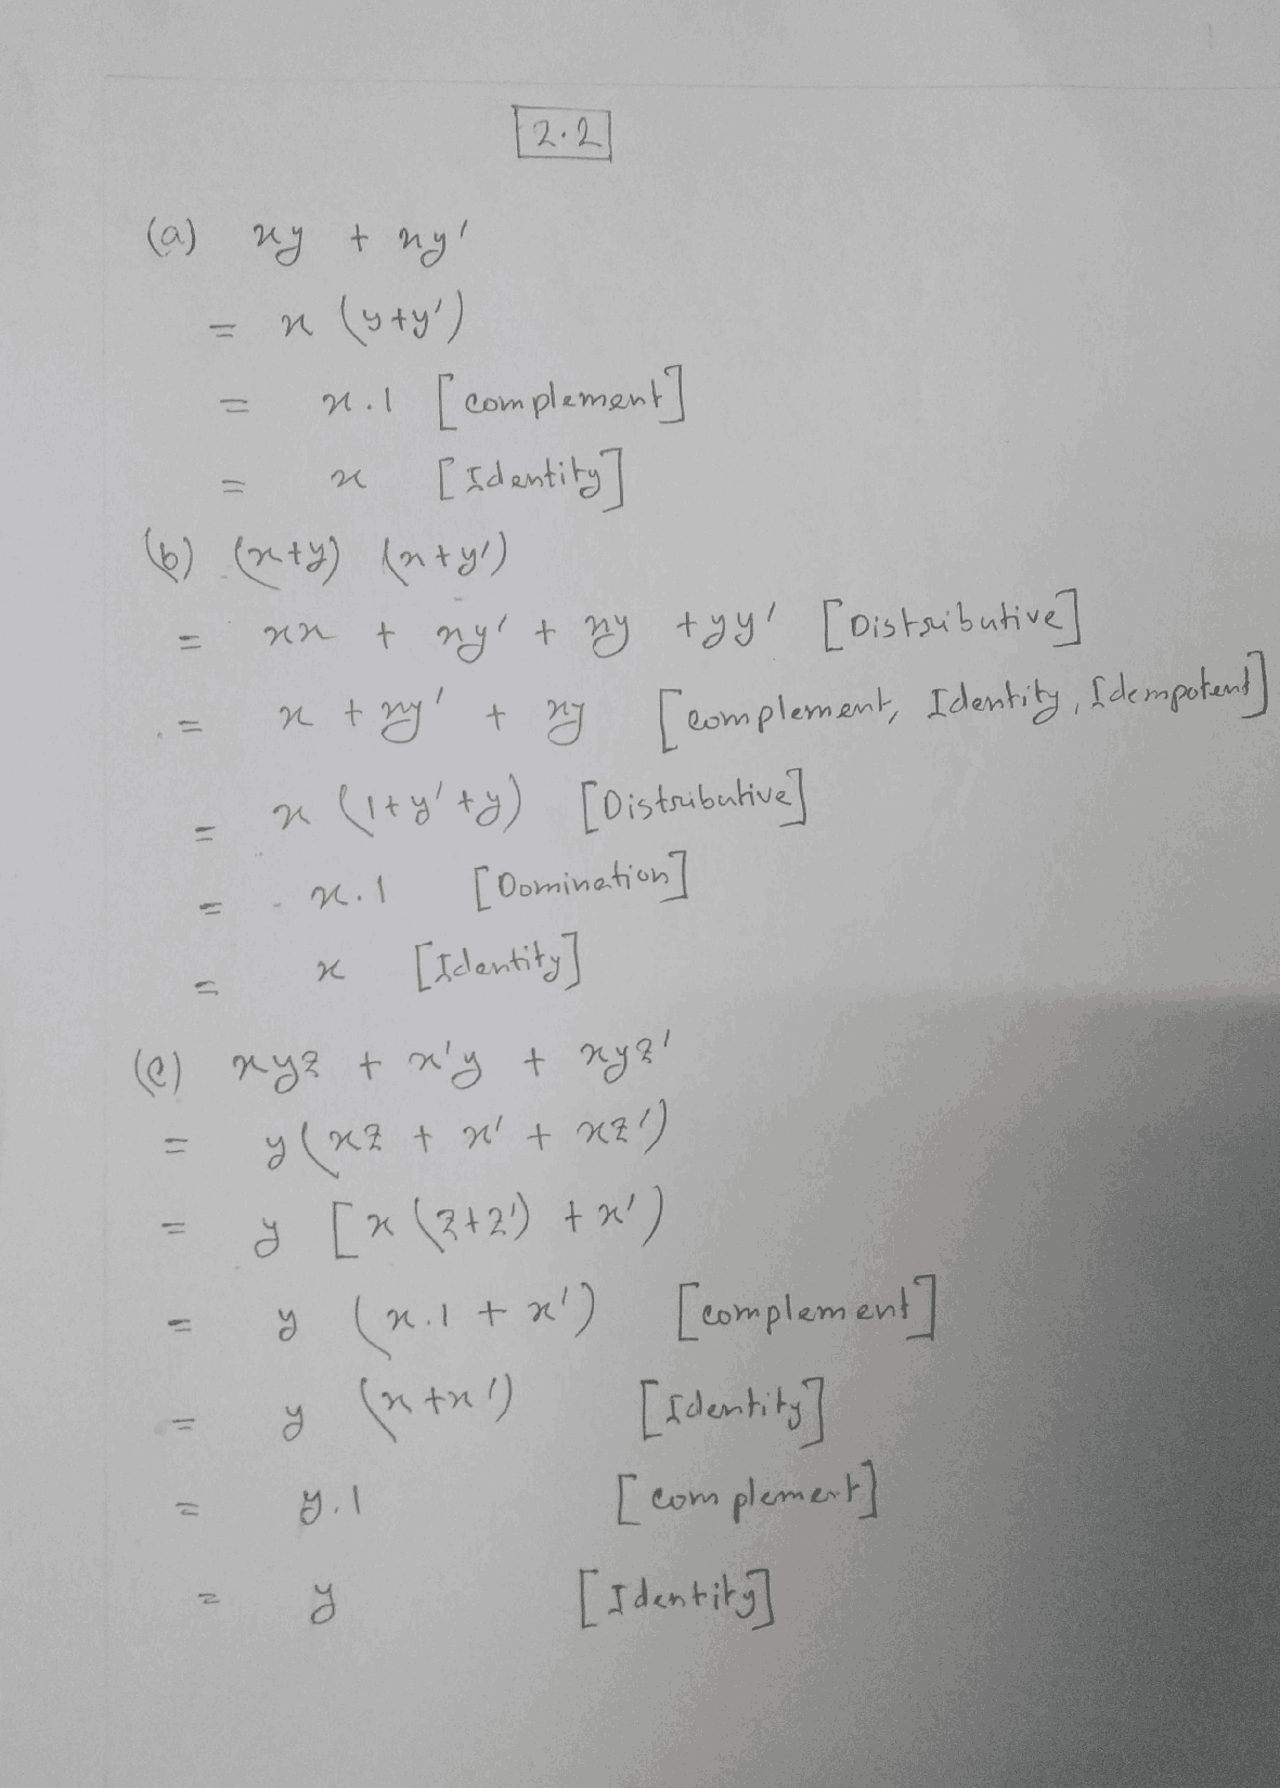 2.2
(a) xy + xy'
= x (y+y')
= x.1 [complement]
= x [Identity]
(b) (x+y) (x+y')
= xx + xy' + xy + yy' [Distributive]
= x + xy' + xy [complement, Identity, Idempotent]
= x (1+y'+y) [Distributive]
= x.1 [Domination]
= x [Identity]
(c) xyz + x'y + xyz'
= y(xz + x' + xz')
= y [x (z+z') + x')
= y (x.1 + x') [complement]
= y (x+x') [Identity]
= y.1 [complement]
= y [Identity]